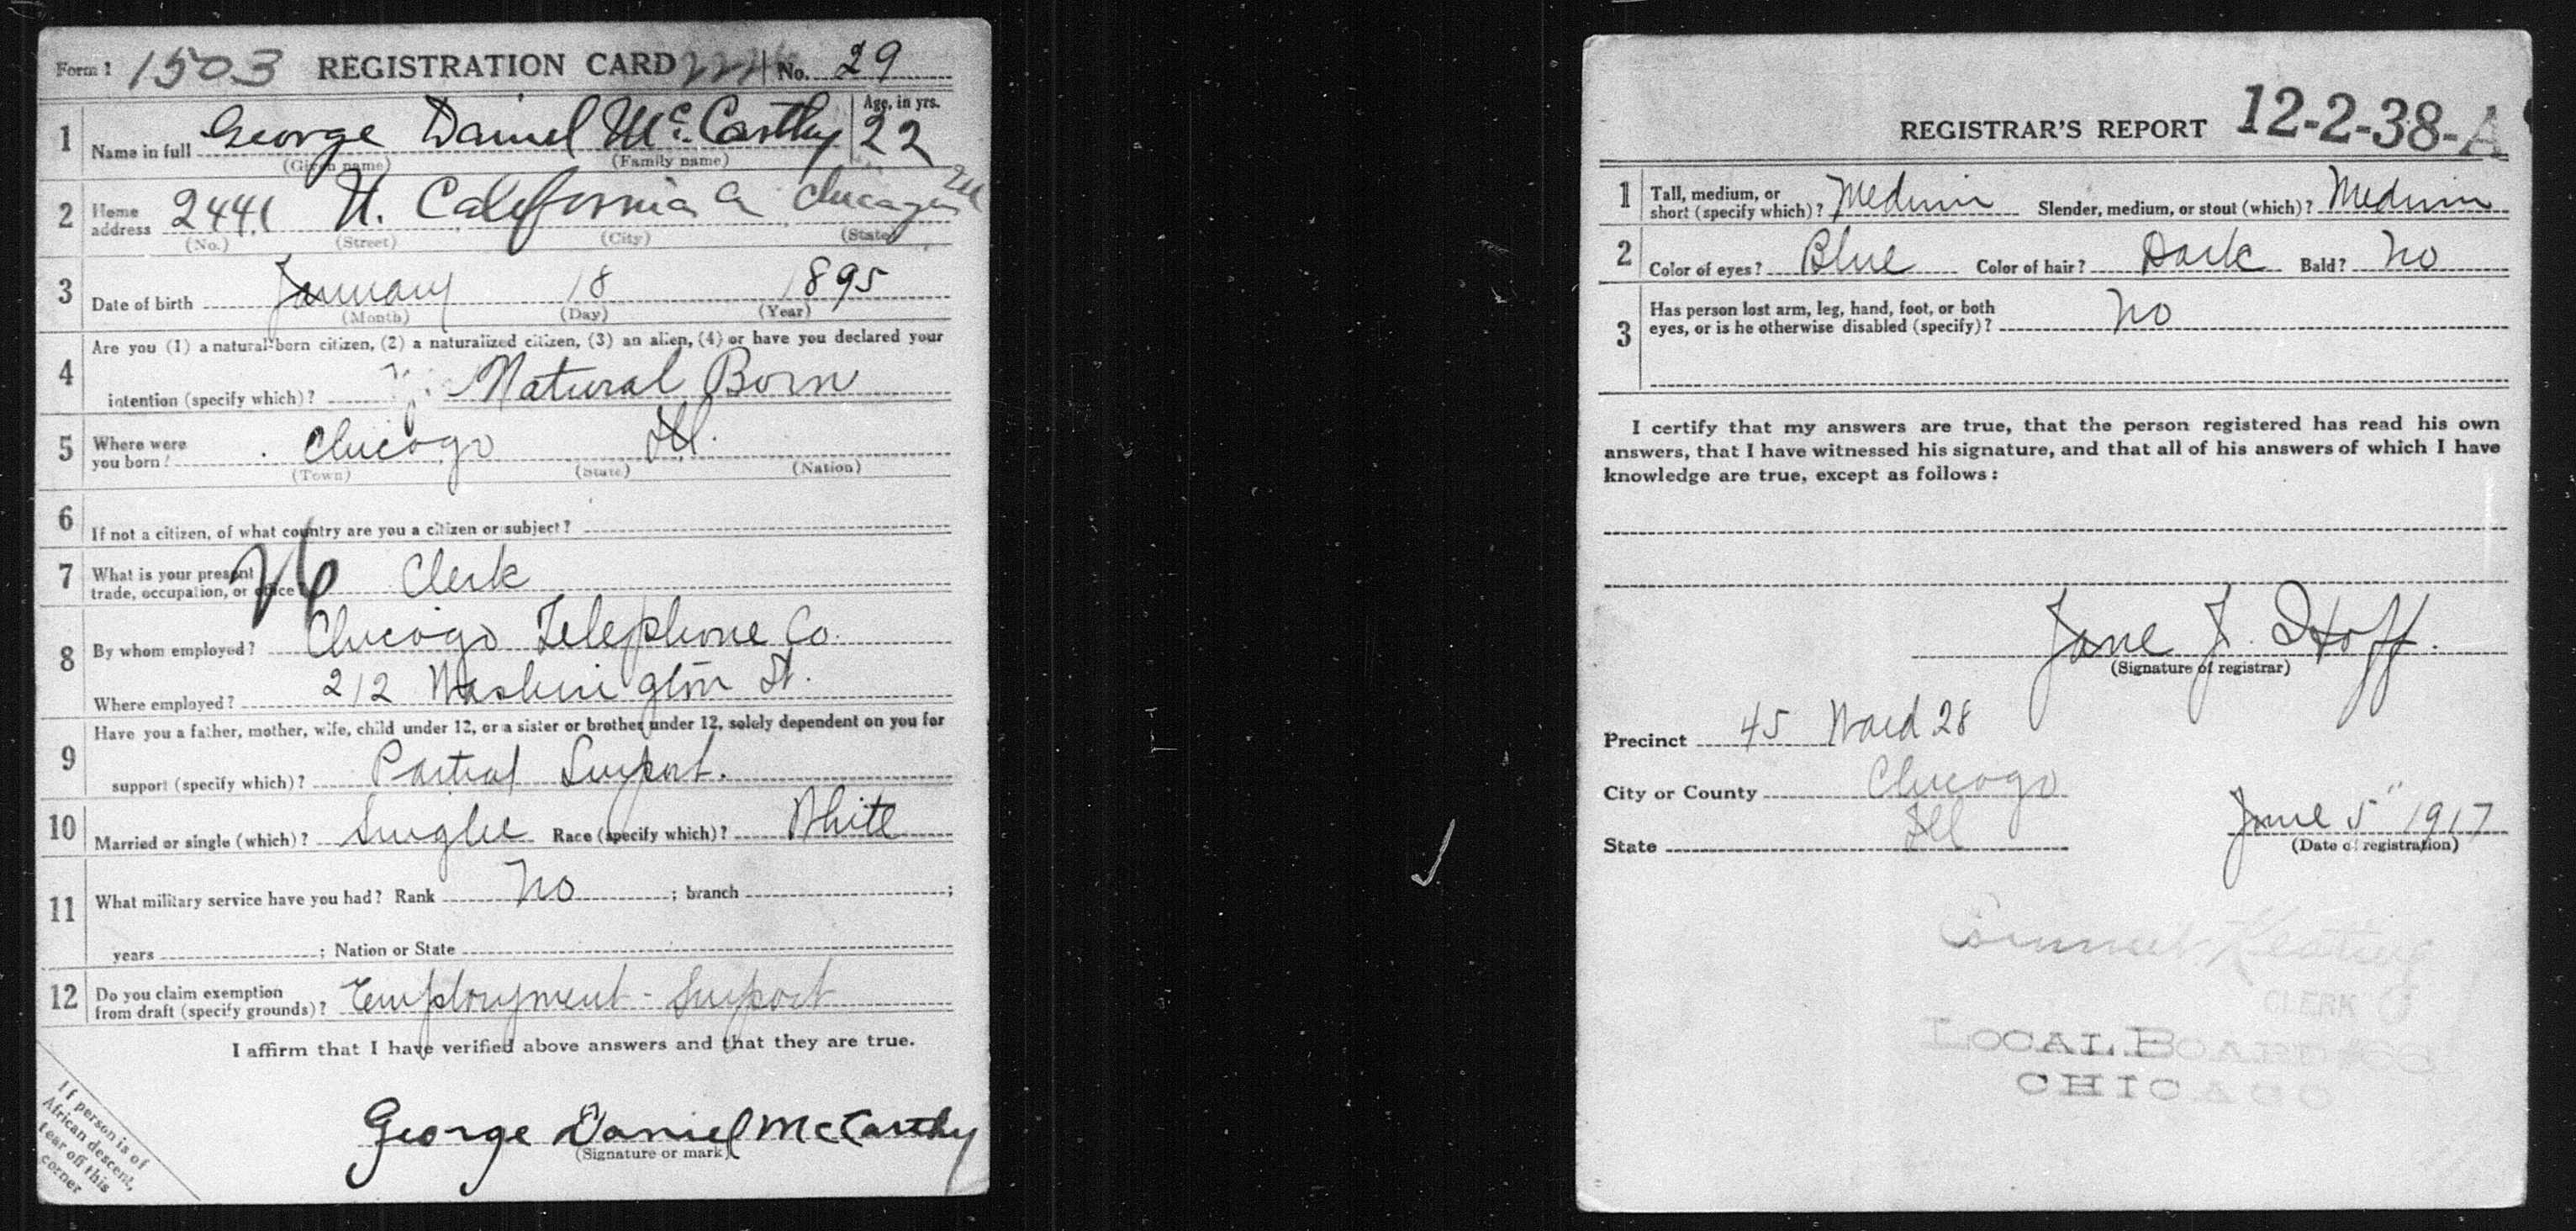 Form 1 1503 REGISTRATION CARD No. 29
1 Name in full George Daniel McCarthy Age, in yrs. 22
(Given name) (Family name)
2 Home address 2441 N. California Chicago Ill
(No.) (Street) (City) (State)
3 Date of birth January 18 1895
(Month) (Day) (Year)
4 Are you (1) a natural-born citizen, (2) a naturalized citizen, (3) an alien, (4) or have you declared your
intention (specify which)? Natural Born
5 Where were you born? Chicago Ill.
(Town) (State) (Nation)
6 If not a citizen, of what country are you a citizen or subject?
7 What is your present
trade, occupation, or office? 26 Clerk
8 By whom employed? Chicago Telephone Co.
Where employed? 212 Washington St.
9 Have you a father, mother, wife, child under 12, or a sister or brother under 12, solely dependent on you for
support (specify which)? Partial Support.
10 Married or single (which)? Single Race (specify which)? White
11 What military service have you had? Rank no ; branch ;
years ; Nation or State
12 Do you claim exemption
from draft (specify grounds)? Employment - Support
I affirm that I have verified above answers and that they are true.
George Daniel McCarthy
(Signature or mark)
If person is of
African descent,
tear off this
corner
REGISTRAR'S REPORT 12-2-38-A
1 Tall, medium, or
short (specify which)? Medium Slender, medium, or stout (which)? Medium
2 Color of eyes? Blue Color of hair? Dark Bald? No
3 Has person lost arm, leg, hand, foot, or both
eyes, or is he otherwise disabled (specify)? No
I certify that my answers are true, that the person registered has read his own
answers, that I have witnessed his signature, and that all of his answers of which I have
knowledge are true, except as follows:
Jane J. Hoff.
(Signature of registrar)
Precinct 45 Ward 28
City or County Chicago
State Ill June 5" 1917
(Date of registration)
CLERK
LOCAL BOARD 66
CHICAGO